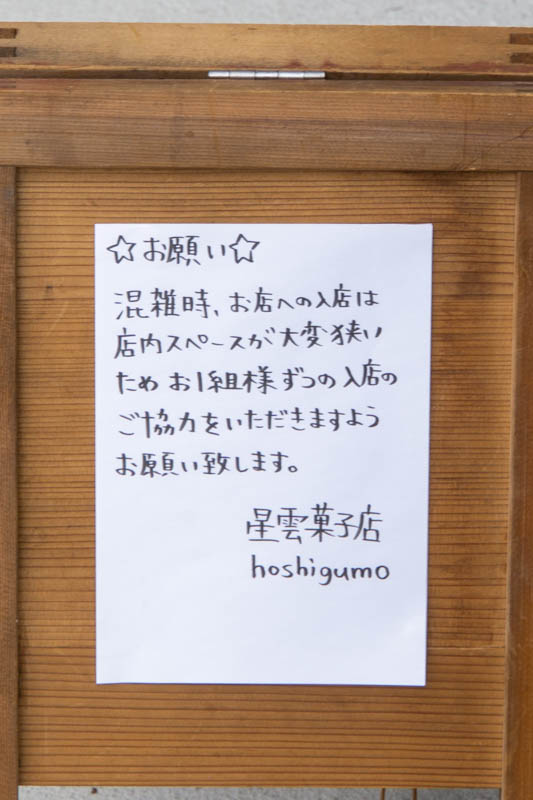 ☆お願い☆
混雑時、お店への入店は
店内スペースが大変狭い
ため お1組様ずつの入店の
ご協力をいただきますよう
お願い致します。
星雲菓子店
hoshigumo